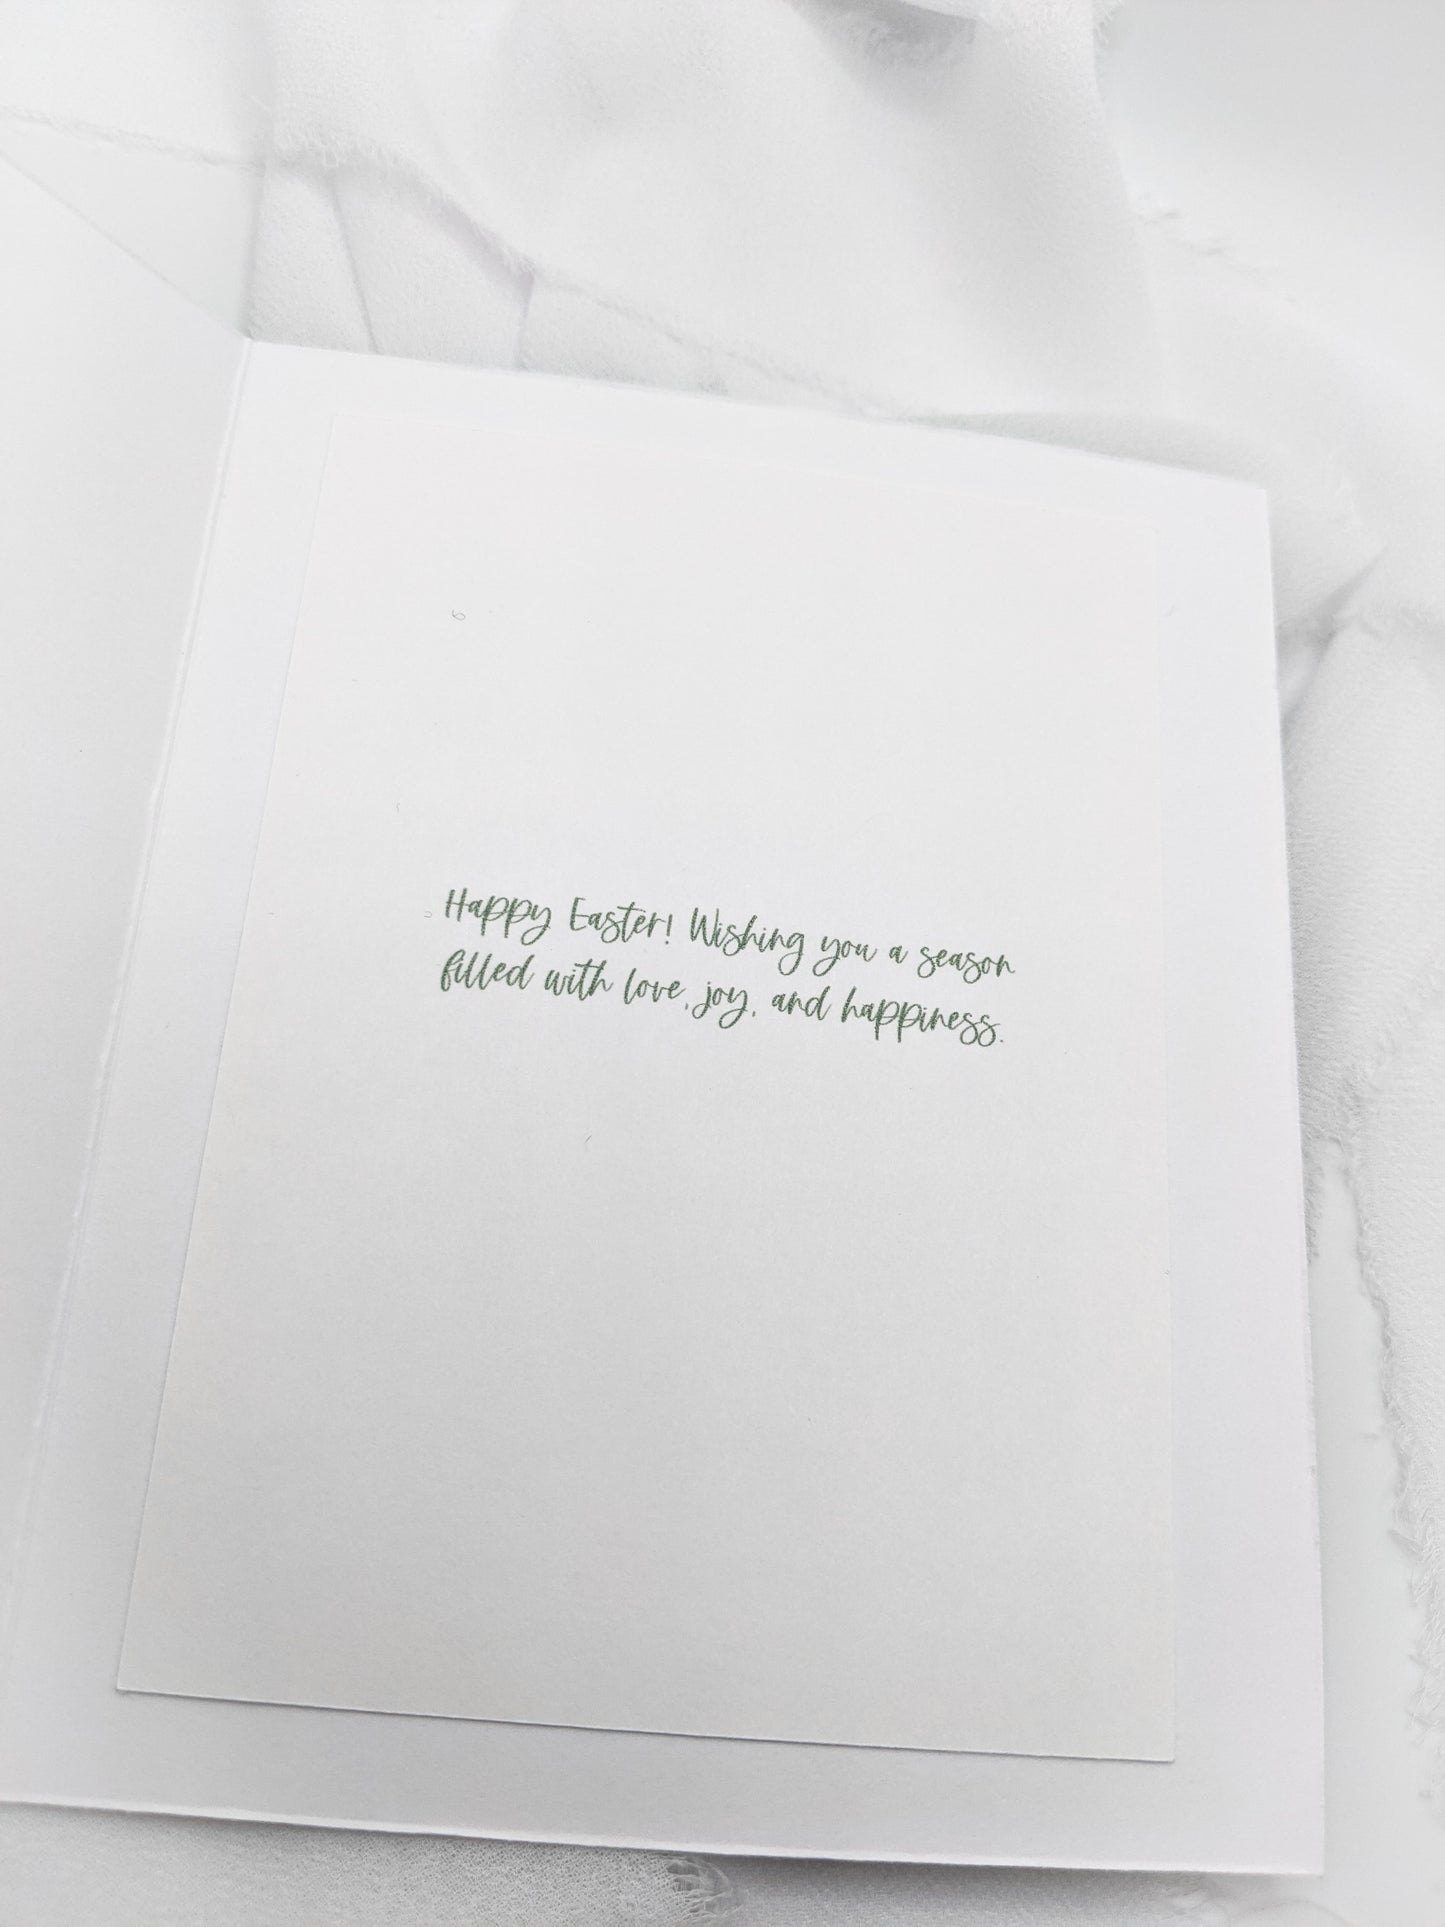 Happy Easter! Wishing you a season
filled with love, joy, and happiness.